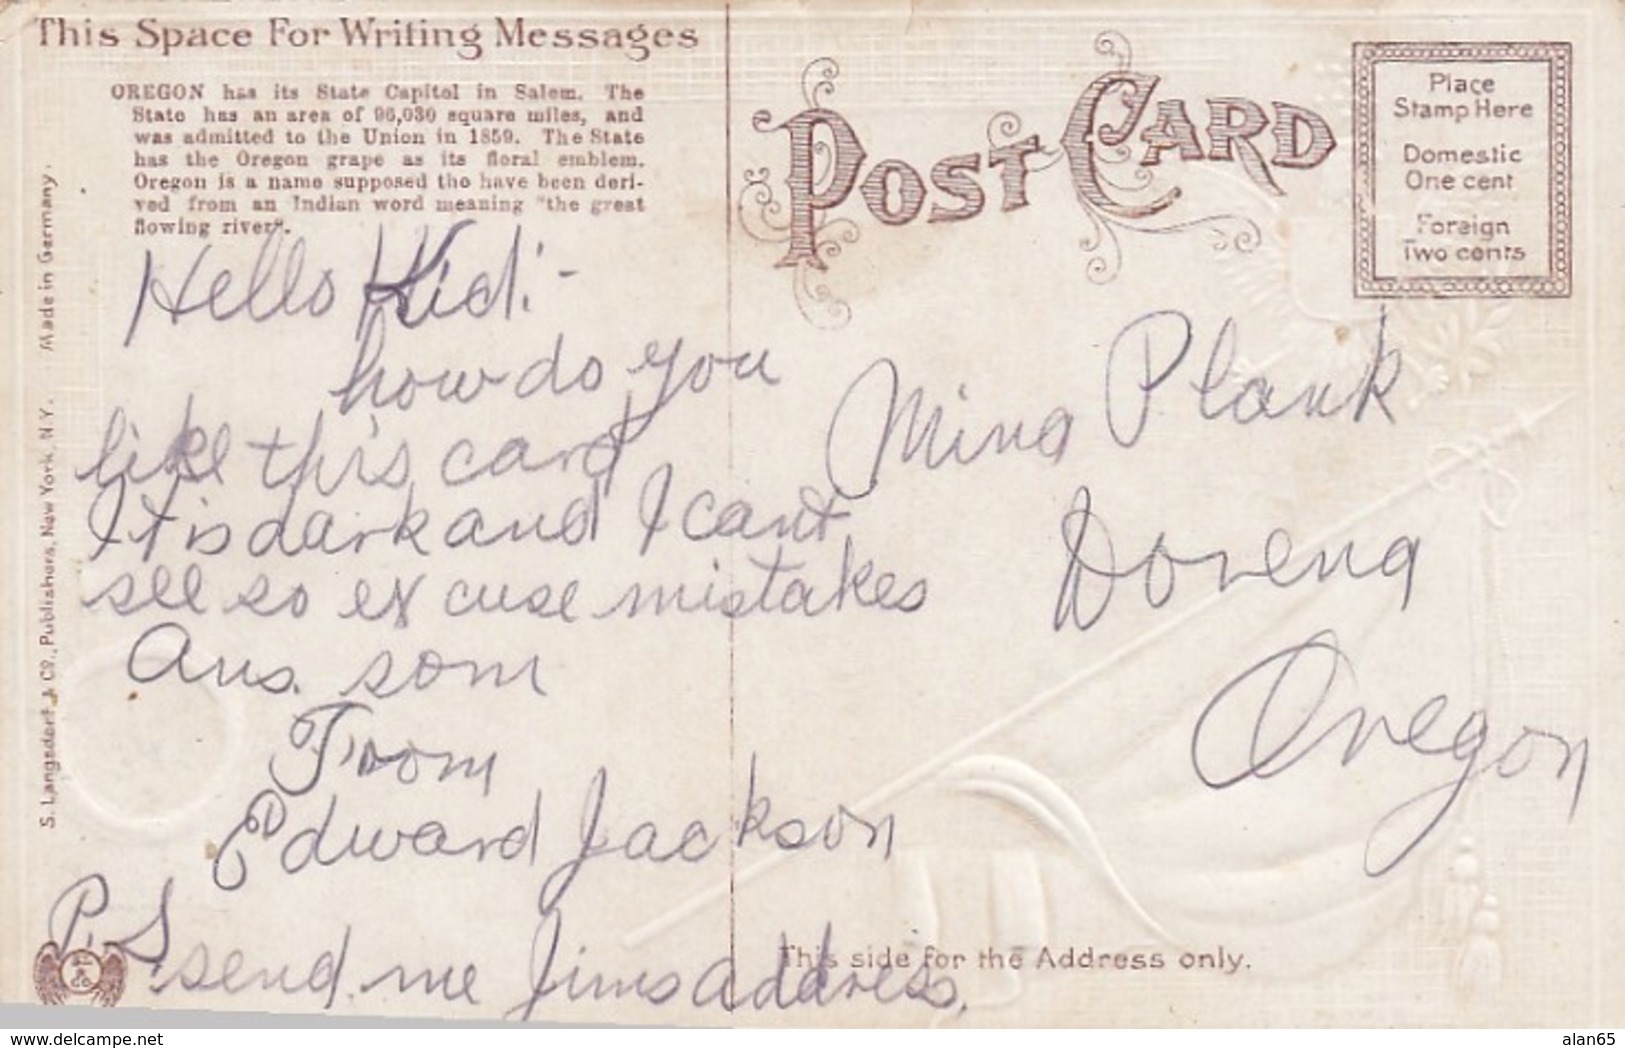 This Space For Writing Messages
OREGON has its State Capitol in Salem. The
State has an area of 96,030 square miles, and
was admitted to the Union in 1859. The State
has the Oregon grape as its floral emblem.
Oregon is a name supposed tho have been deri-
ved from an Indian word meaning "the great
flowing river".
Hello Kid:-
how do you
like this card
It is dark and I cant
see so ex cuse mistakes
Ans. som
From
Edward Jackson
P.S
send me Jims address.
S. Langsdorf & Co., Publishers, New York, N.Y. Made in Germany.
POST CARD
Place
Stamp Here
Domestic
One cent
Foreign
Two cents
Mina Plank
Dorena
Oregon
This side for the Address only.
www.delcampe.net
alan65